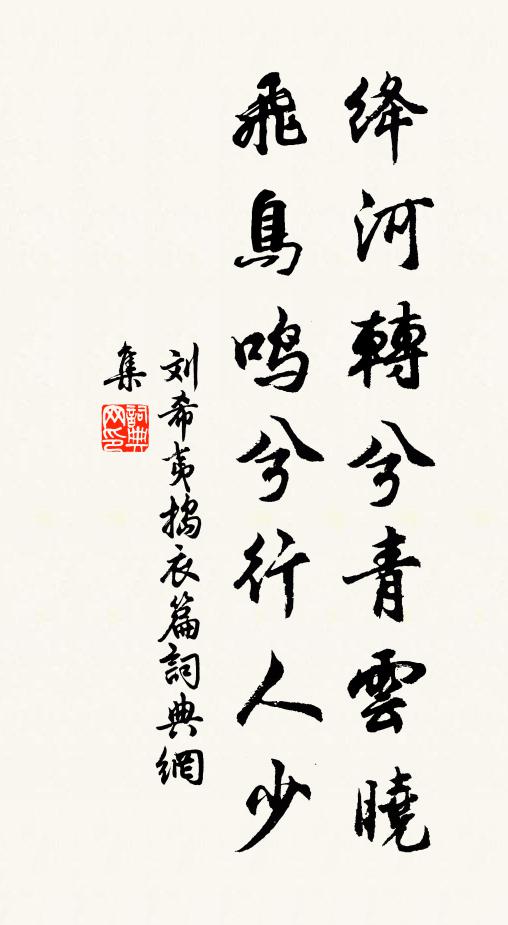 绛河轉兮青雲曉
飛鳥鸣兮行人少
刘希夷搗衣篇詞典網
集
詞典
网印